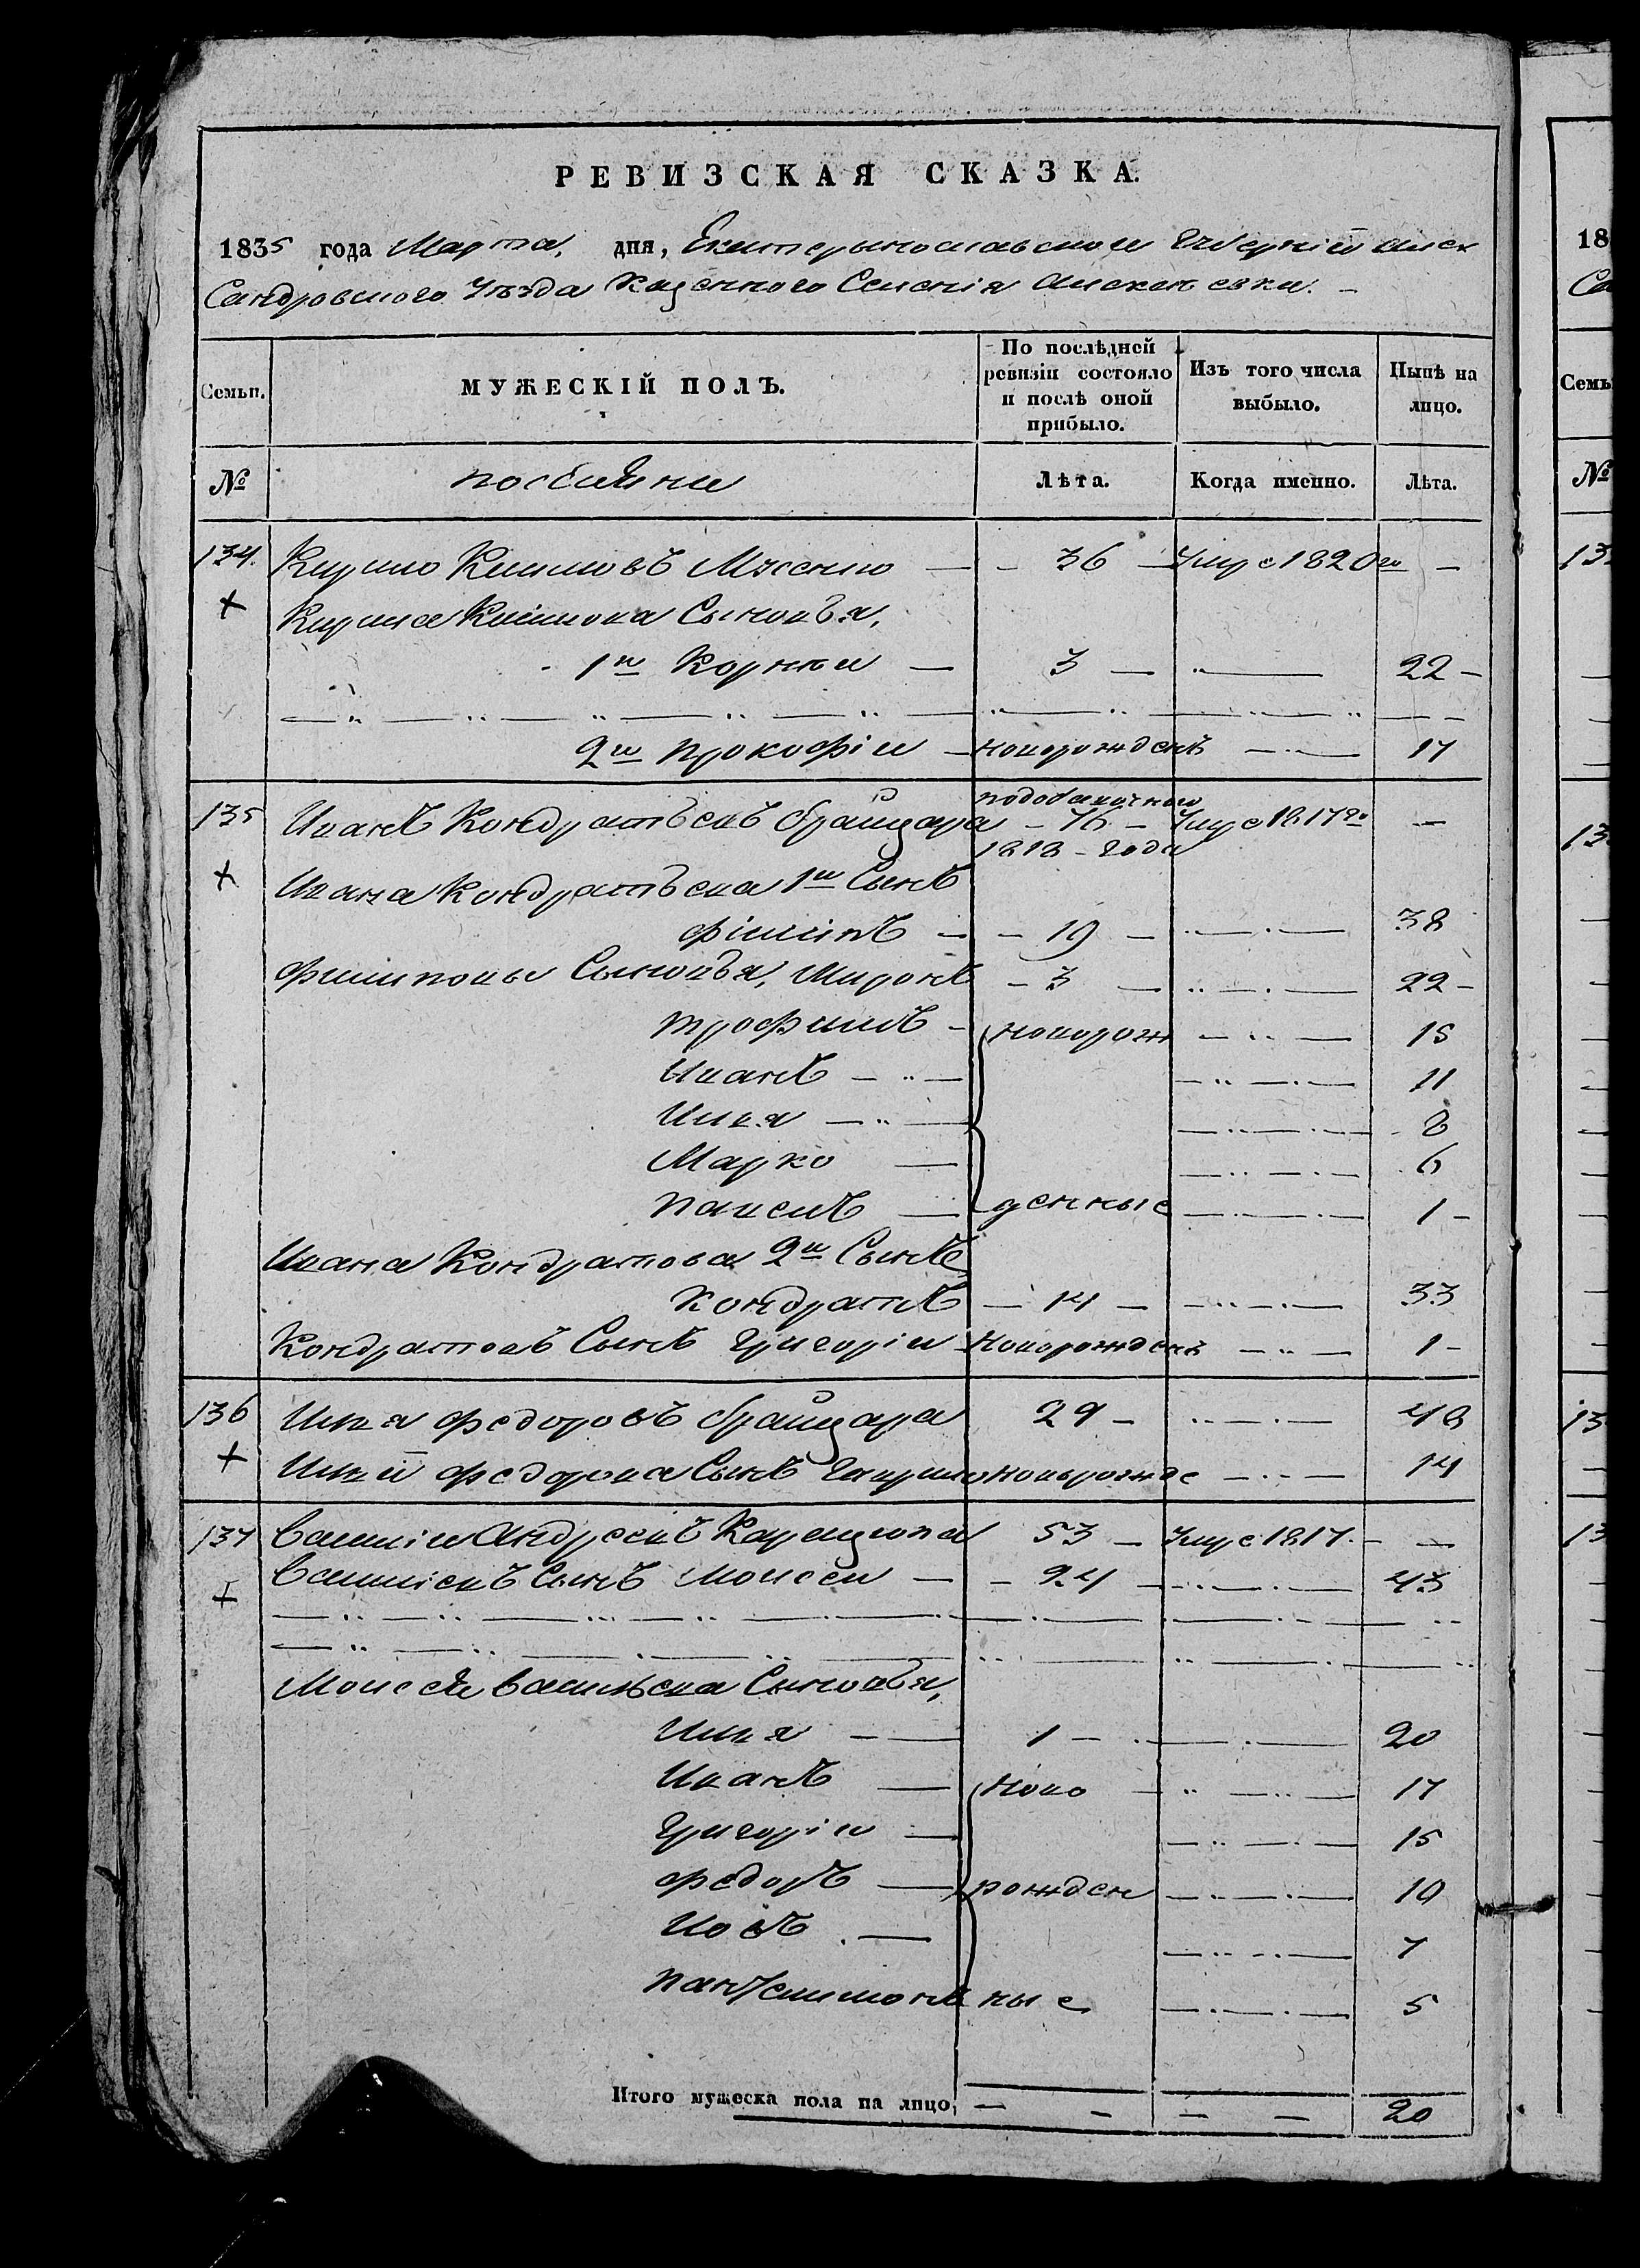 РЕВИЗСКАЯ СКАЗКА.
1835 года Марта, дня, Екатеринославской Губерніи Алек
сандровского Уѣзда Казенного Селенія Алексѣевки. –
Семьи. МУЖЕСКІЙ ПОЛЪ. По послѣдней ревизіи состояло и послѣ оной прибыло. Изъ того числа выбыло. Нынѣ на лицо.
№ поселяни Лѣта. Когда именно. Лѣта.
134. Кирило Климовъ 36 Умре 1820го –
Кирила Климова Сыновья,
1й Корнѣй 3 22
2й Прокофій новорожденъ 17
135 Иванъ Кондратьевъ 76 Умре 1817го –
1818 года
Ивана Кондратьева 1й Сынъ
Філіпъ 19 38
Филиповы Сыновья, Миронъ 3 22
Трофимъ новорож 15
Иванъ 11
Илья 8
Марко 6
Павелъ денные 1
Ивана Кондратова 2й Сынъ
Кондратъ 14 33
Кондратовъ Сынъ Григорій Новорожденъ 1
136 Илья Федоровъ 29 48
Ильи Федорова Сынъ Гаврило новорожде 14
137 Василій Андреевъ 53 Умре 1817. –
Василіевъ Сынъ Моисей 24 43
Моисея Васильева Сыновья,
Илья 1 20
Иванъ Ново 17
Григорій 15
Федоръ рожден 10
Иовъ 7
Пантелимонъ ные 5
Итого мужеска пола на лицо, 20
18
Семь
№
13
13
13
13